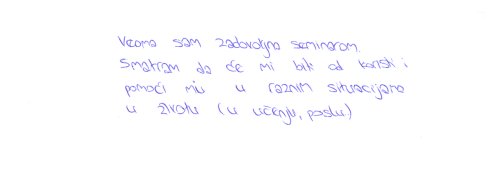 Veoma sam zadovoljna seminarom.
Smatram da će mi biti od koristi i
pomoći mi u raznim situacijama
u životu (u učenju, poslu)